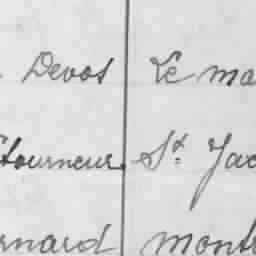 Devos Le ma
tourneur St. Jac
rnard mont